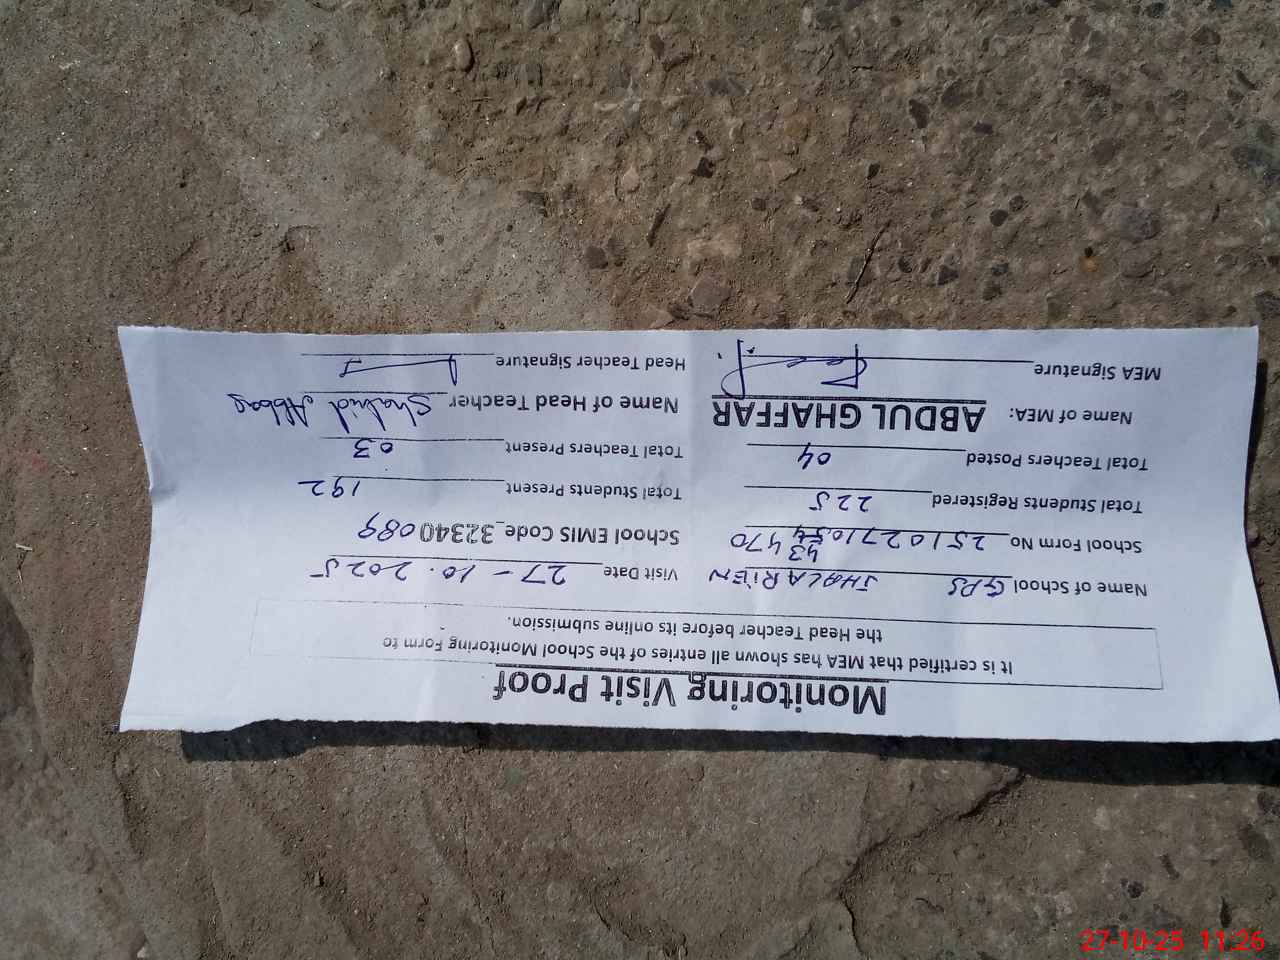 Monitoring Visit Proof
It is certified that MEA has shown all entries of the School Monitoring Form to
the Head Teacher before its online submission.
Name of School GPS JHALARIEN Visit Date 27-10.2025
School Form No 2510271054 43470 School EMIS Code_32340089
Total Students Registered 225 Total Students Present 192
Total Teachers Posted 04 Total Teachers Present 03
Name of MEA: ABDUL GHAFFAR Name of Head Teacher Shahid Abbas
MEA Signature Head Teacher Signature
27-10-25 11:26